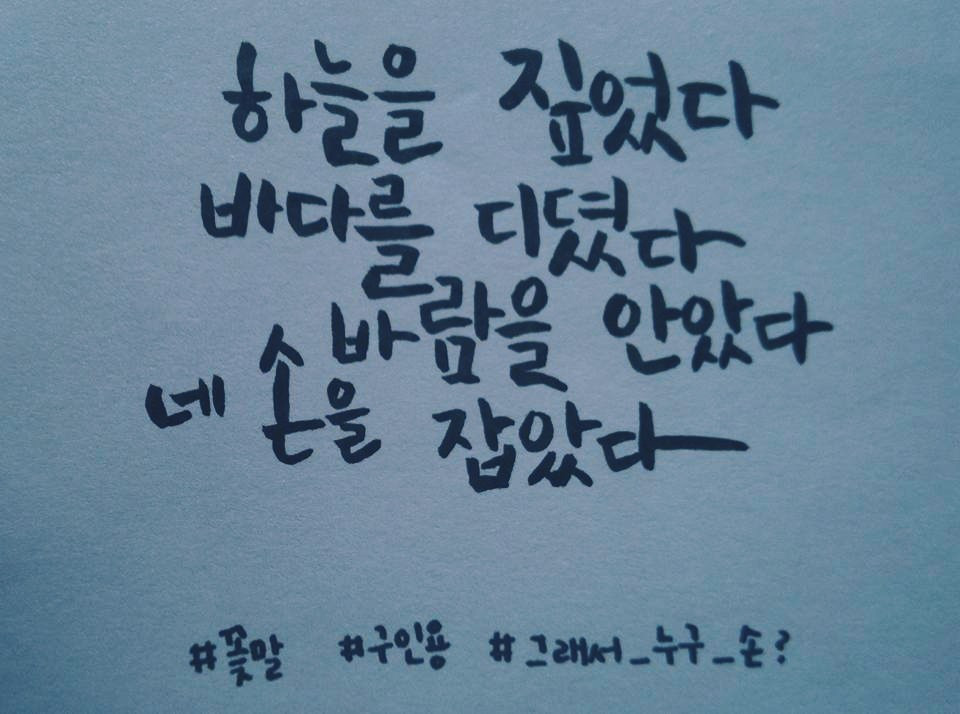 하늘을 짚었다
바다를 디뎠다
바람을 안았다
네 손을 잡았다
#꽃말 #구인용 #그래서_누구_손?